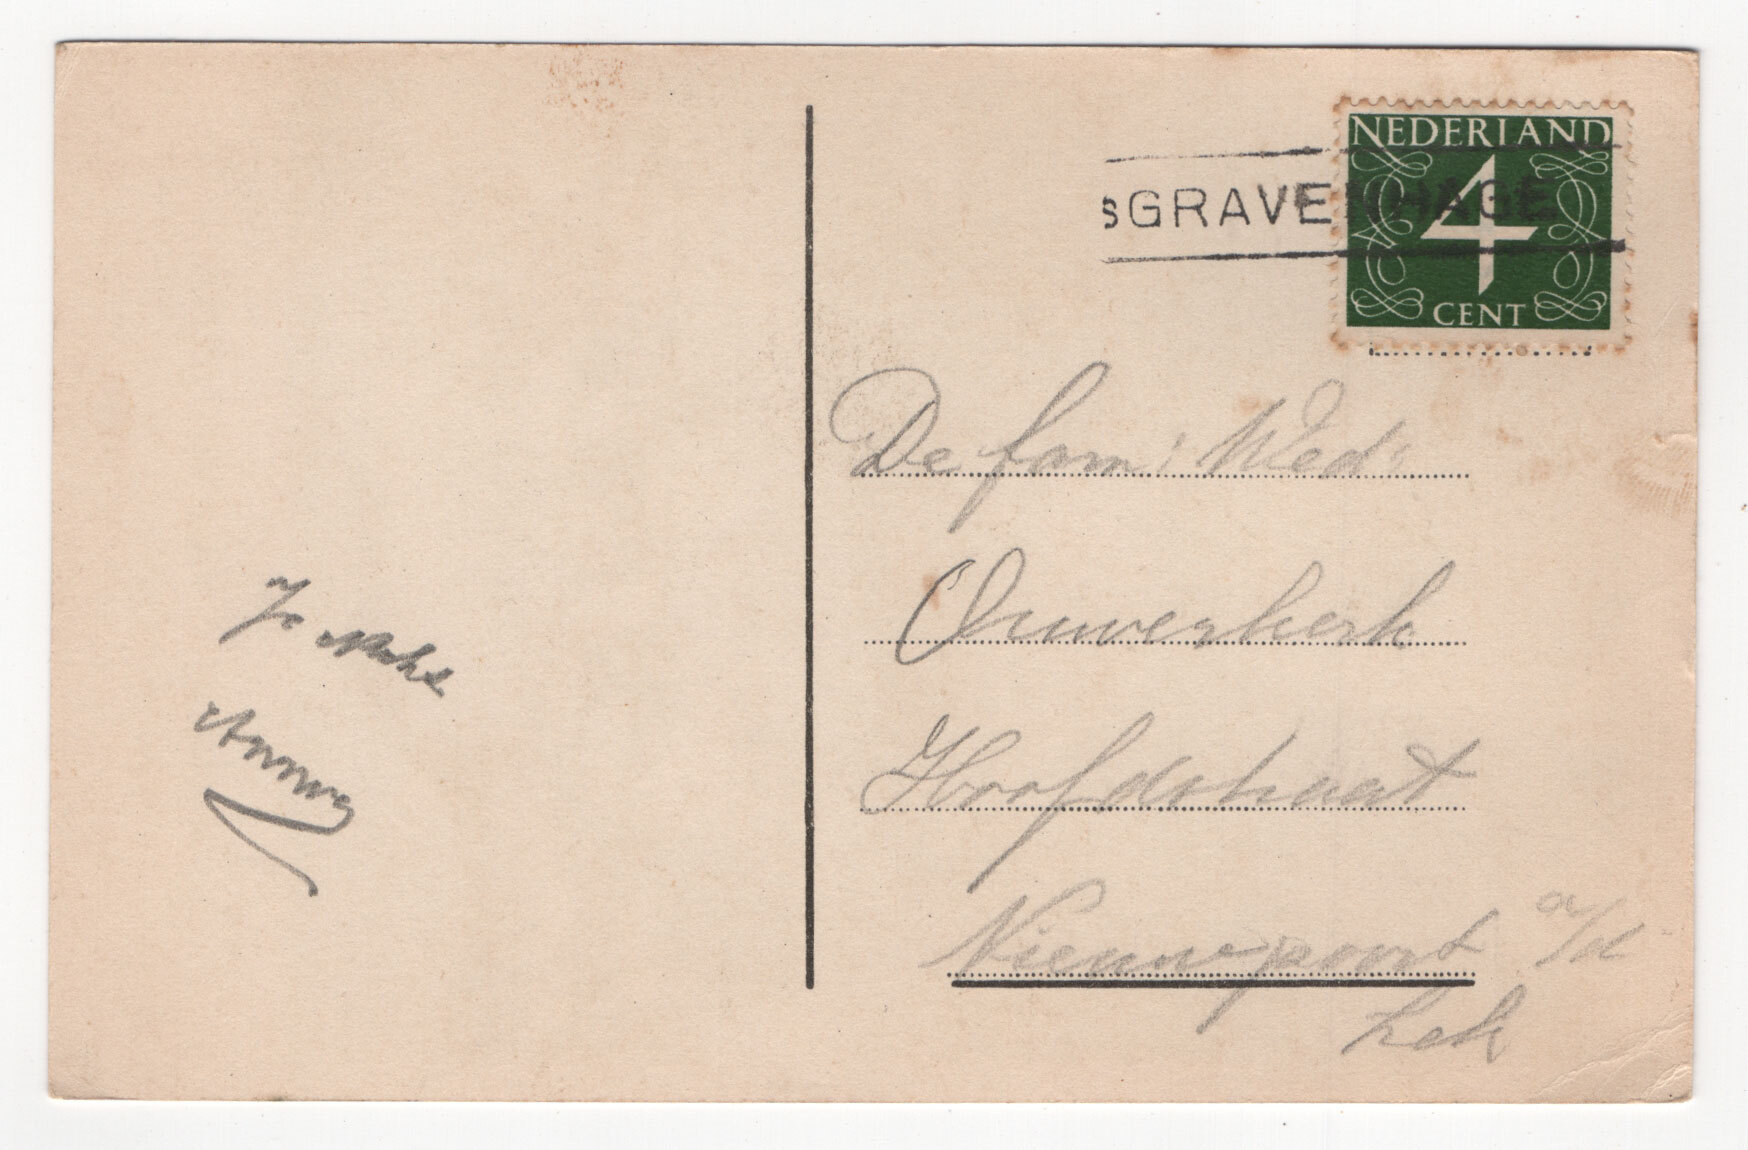 NEDERLAND
4
CENT
sGRAVENHAGE
De fam: Wed.
Ouwerkerk
Hoofdstraat
Nieuwpoort a/d
Lek
Jo